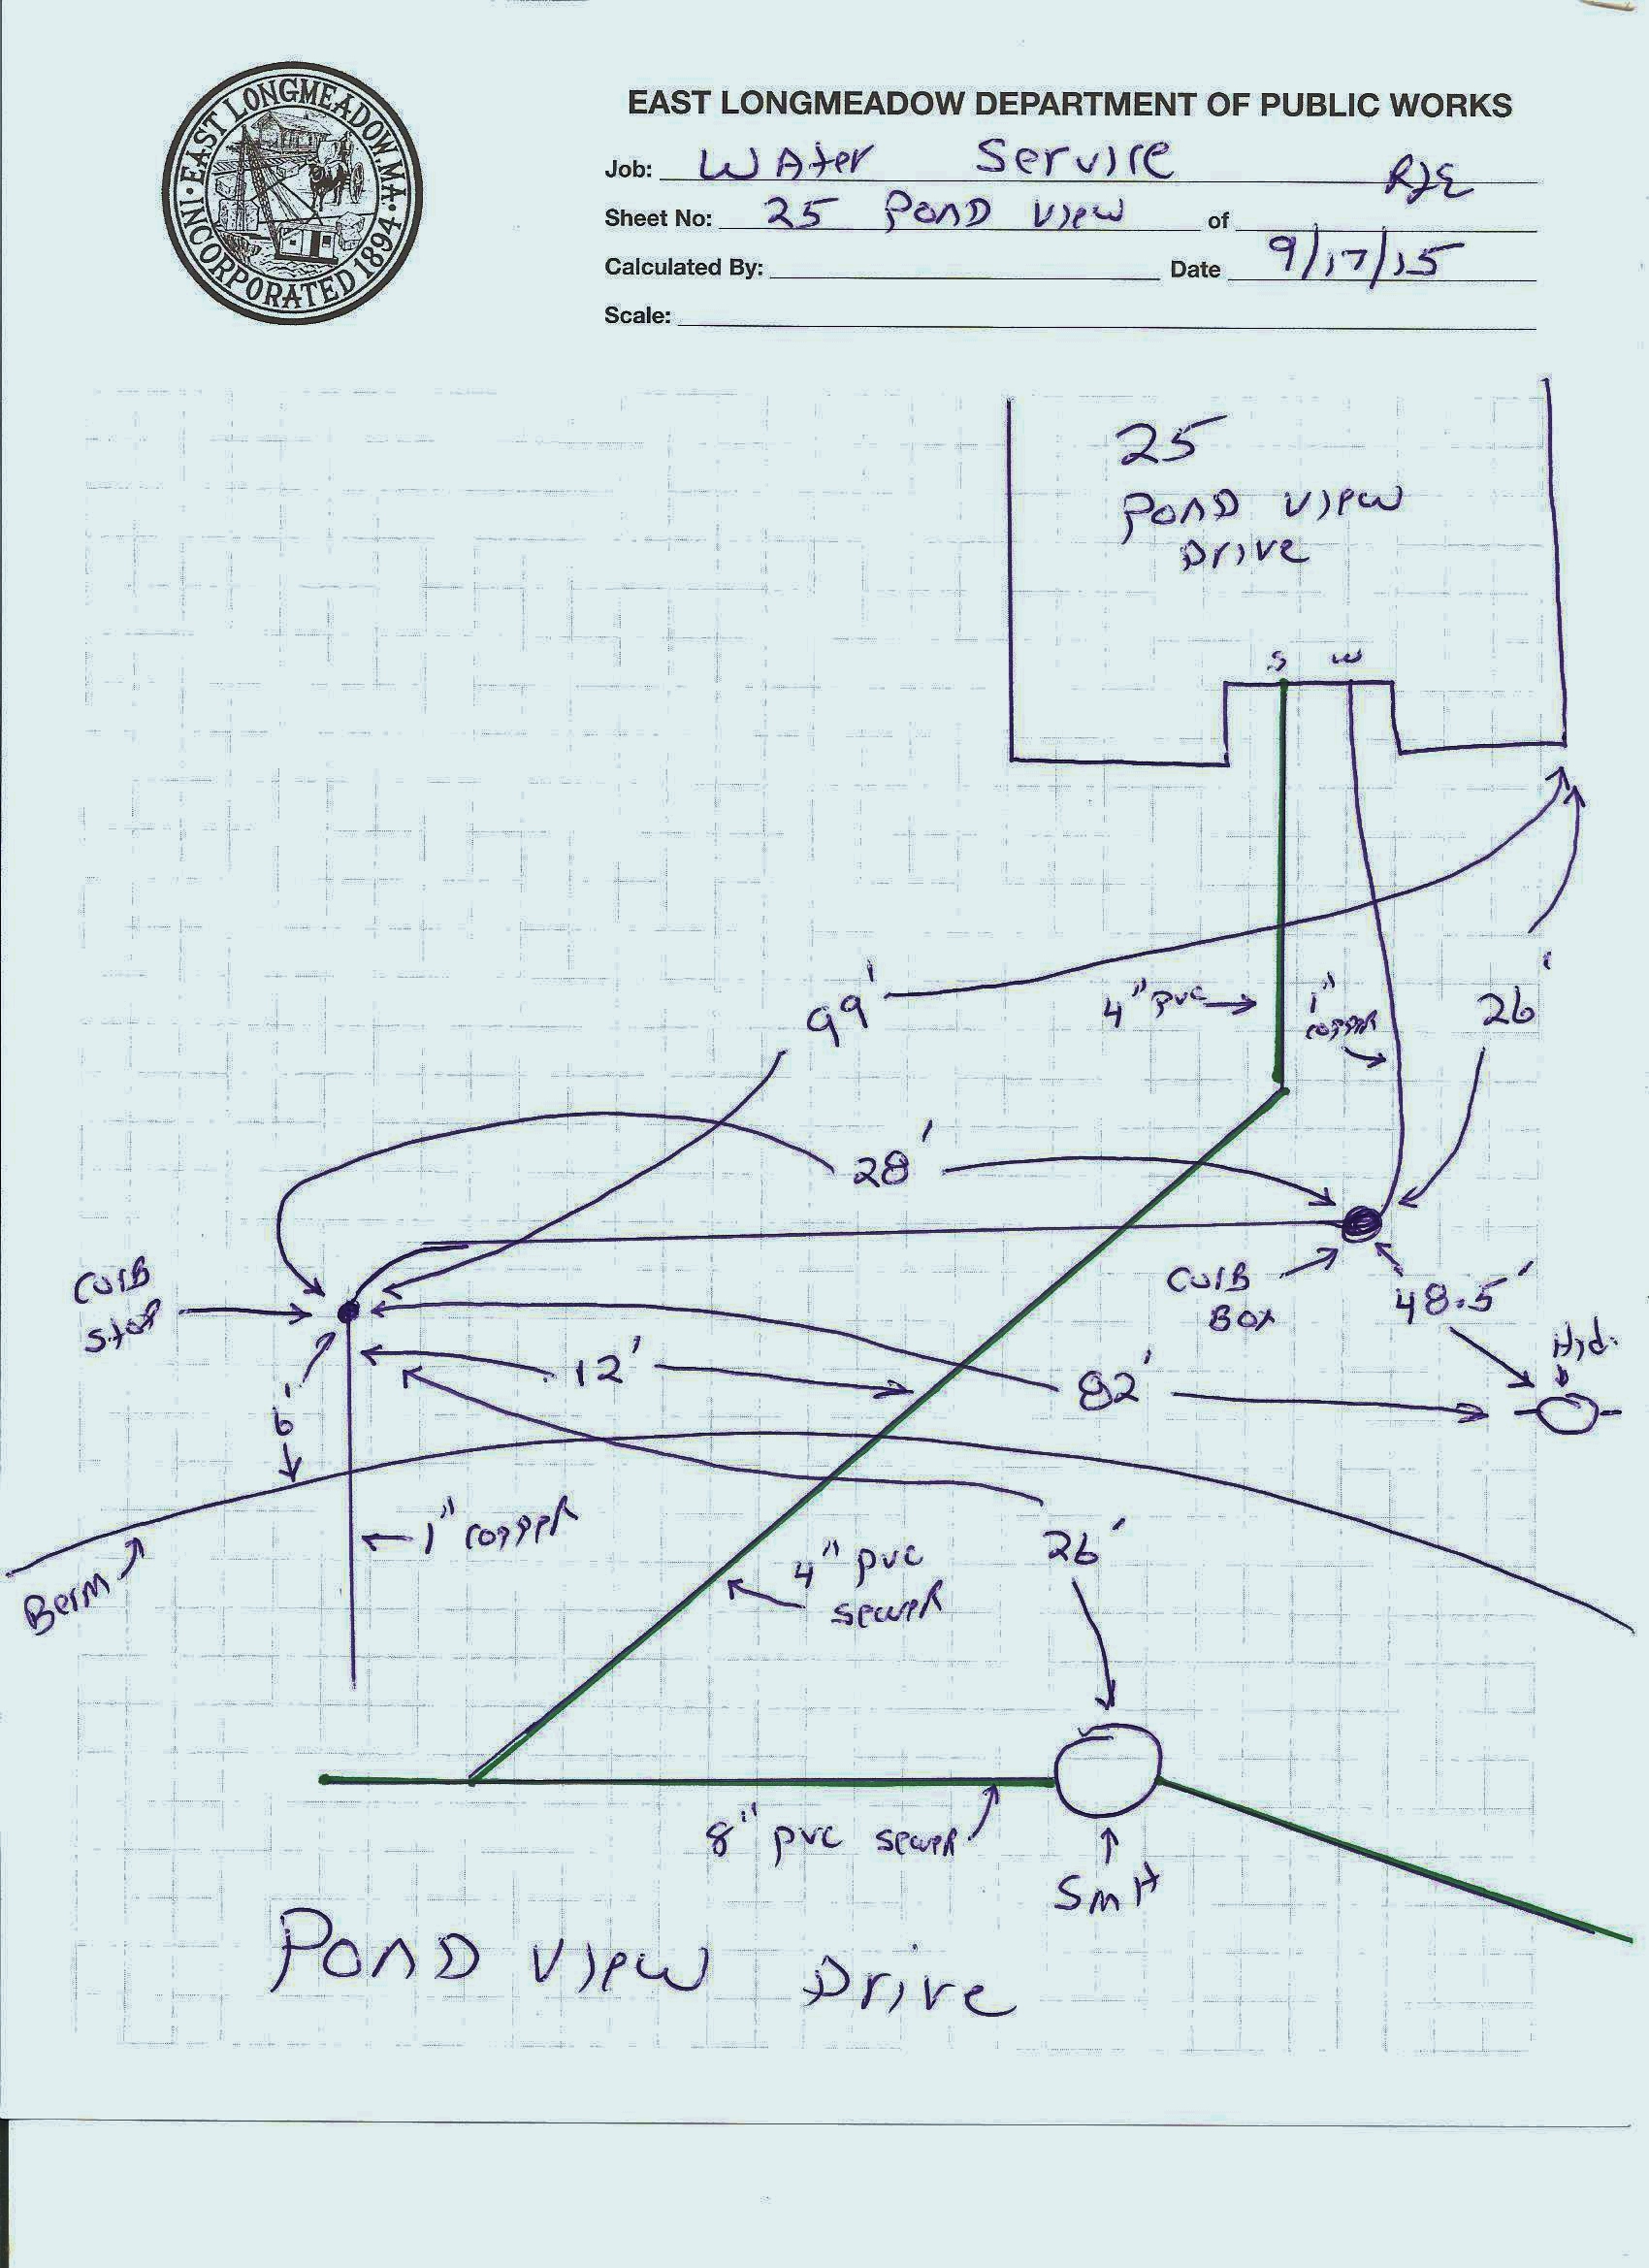 EAST LONGMEADOW, MA.
INCORPORATED 1894
EAST LONGMEADOW DEPARTMENT OF PUBLIC WORKS
Job: WAter Service
RJE
Sheet No: 25 PonD View of
Calculated By: Date 9/17/15
Scale:
25
PonD View
Drive
S W
99'
4" pvc
1"
copper
26'
28'
Curb
Stop
Curb
Box
48.5'
Hyd.
12'
82'
6'
1" copper
Berm
4" pvc
sewer
26'
8" pvc sewer
SMH
PonD View Drive